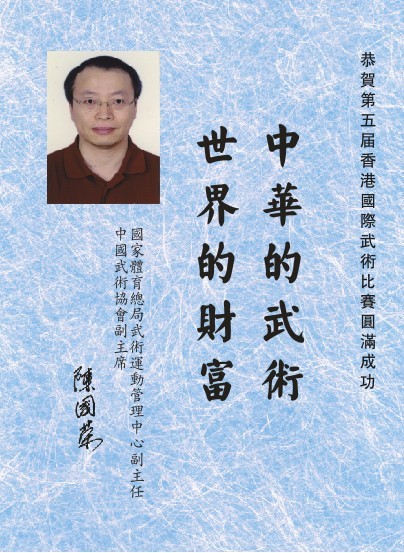 恭賀第五届香港國際武術比賽圓滿成功
中華的武術
世界的財富
國家體育總局武術運動管理中心副主任
中國武術協會副主席
陳國榮